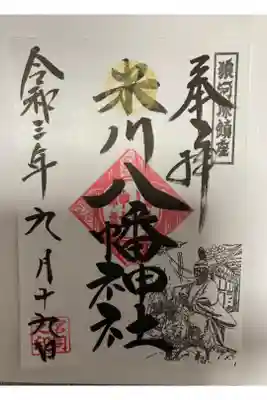 狼河原鎮座
奉拝
米川八幡神社
令和三年九月十九日